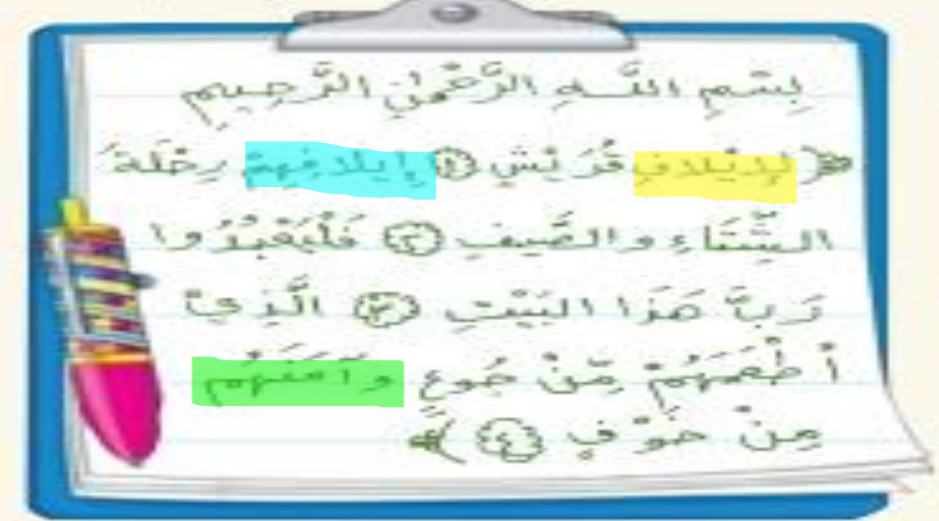 بِسْمِ اللَّهِ الرَّحْمٰنِ الرَّحِيمِ
﴿لِإِيْلَافِ قُرَيْشٍ ﴿١﴾ إِيلَافِهِمْ رِحْلَةَ
الشِّتَاءِ وَالصَّيْفِ ﴿٢﴾ فَلْيَعْبُدُوا
رَبَّ هَذَا الْبَيْتِ ﴿٣﴾ الَّذِيْ
أَطْعَمَهُمْ مِّنْ جُوعٍ وَآمَنَهُم
مِنْ خَوْفٍ ﴿٤﴾﴾